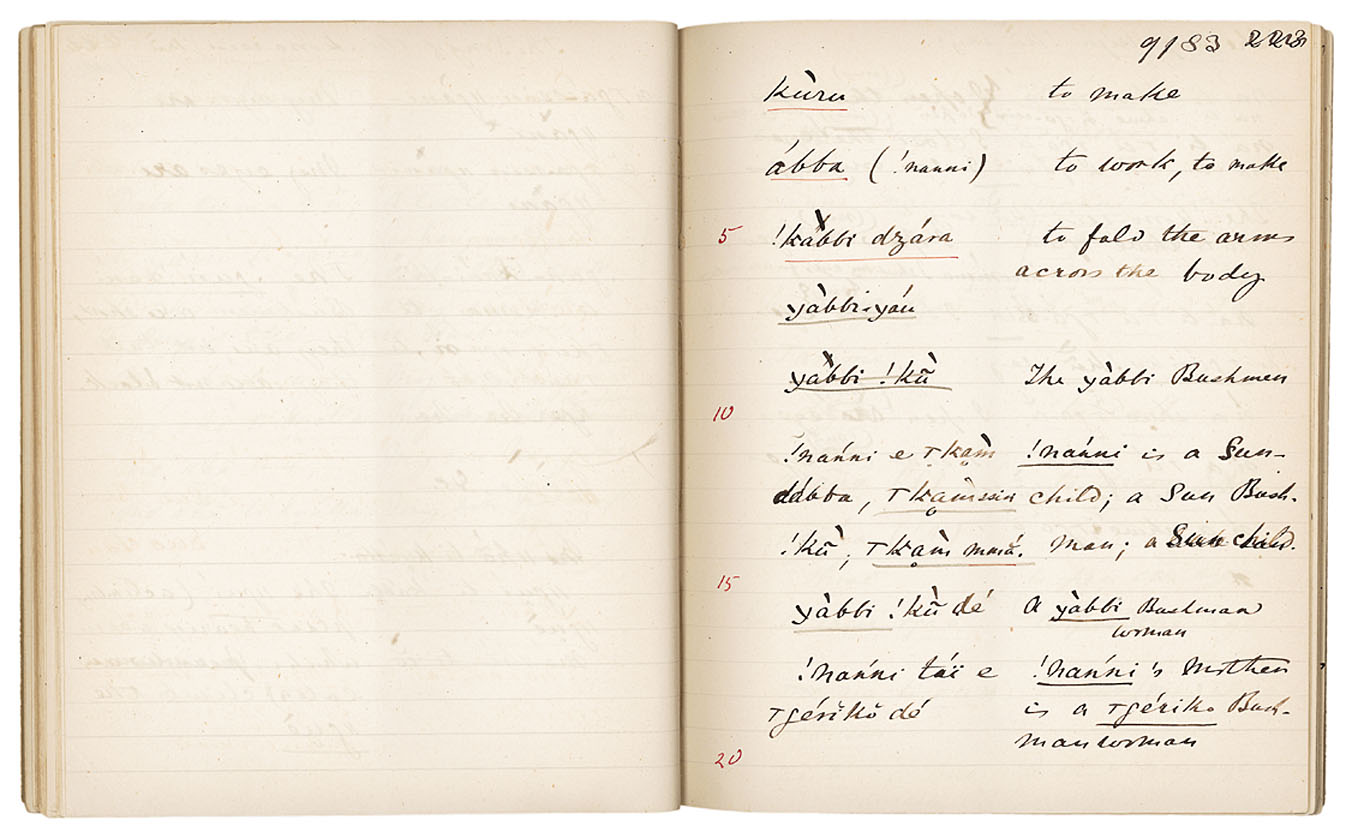 9183 222
kùru to make
ábba (!nanni) to work, to make
5 !kàbbi dzára to fold the arms
across the body
yàbbi-yáu
yàbbi !kũ̀ The yàbbi Bushmen
10
!nańni e ꞇkạm̀ !nańni is a Sun-
dábba, ꞇkạm̀ssin child; a Sun Bush-
!kũ̀; ꞇkạm̀ mmá. man; a Sun child.
15
yàbbi !kũ̀ dé A yàbbi Bushman
woman
!nańni táï e !nańni's Mother
ꞇgérĭkŏ dé is a ꞇgériko Bush-
man woman
20